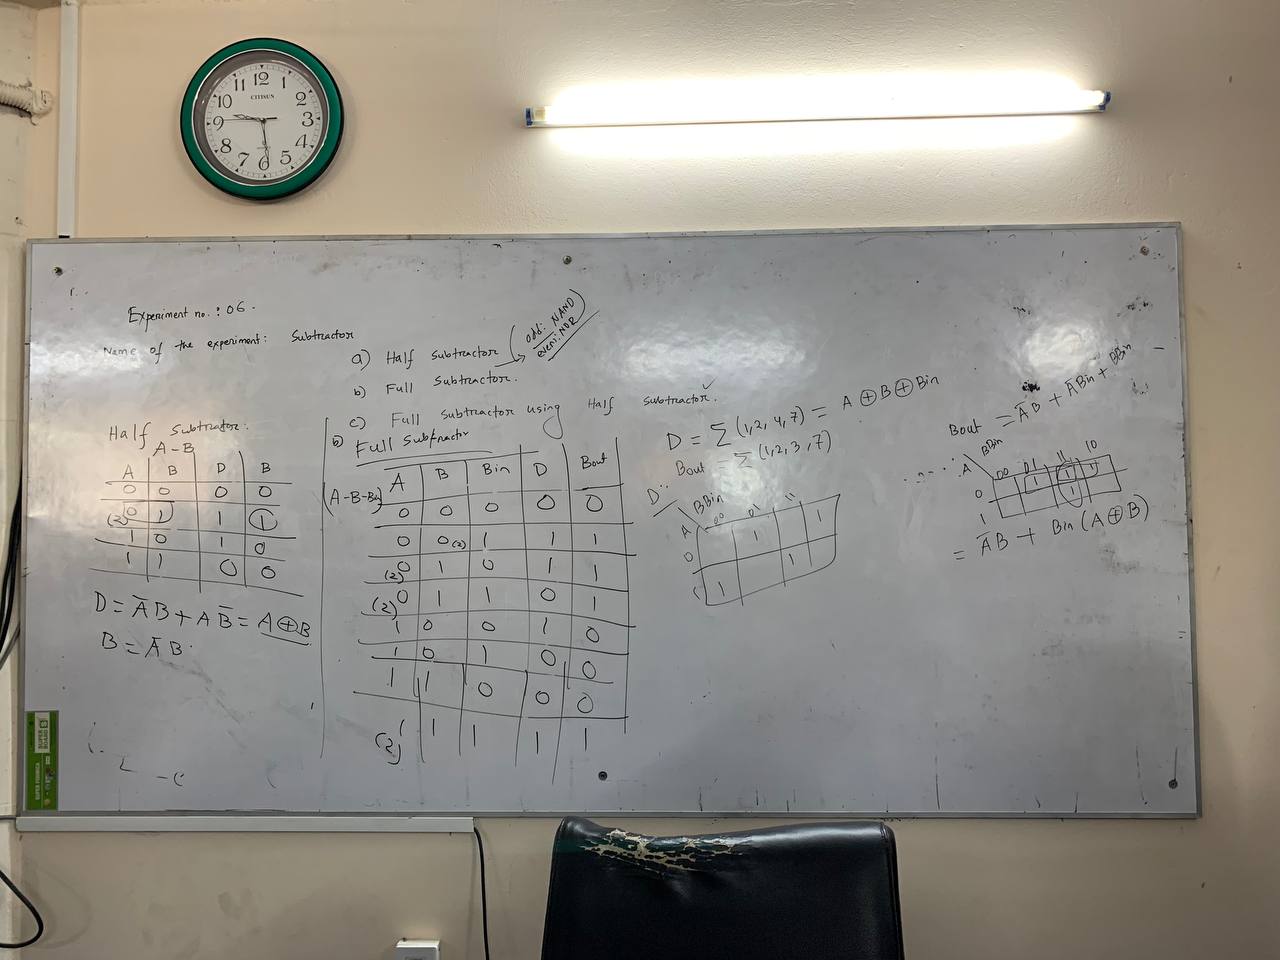 12
11 1
10 2
CITISUN
9 3
8 4
7 5
6
Experiment no.: 06.
Name of the experiment: Subtractor
a) Half Subtractor (odd: NAND
even: NOR)
b) Full Subtractor.
c) Full Subtractor using Half Subtractor. ✓
Half Subtractor.
A-B
A B D B
0 0 0 0
(2) 0 1 1 1
1 0 1 0
1 1 0 0
D = A̅B + AB̅ = A⊕B
B = A̅B.
b) Full Subtractor
A B Bin D Bout
0 0 0 0 0
0 0 (2) 1 1 1
(2) 0 1 0 1 1
(2) 0 1 1 0 1
1 0 0 1 0
1 0 1 0 0
1 1 0 0 0
(2) 1 1 1 1 1
D = Σ(1,2,4,7) = A⊕B⊕Bin
Bout = Σ(1,2,3,7)
D:
A BBin
00 01 11
0 1 1
1 1 1
Bout = A̅B + A̅Bin + BBin
A BBin
00 01 11 10
0 1 1 1
1 1
= A̅B + Bin(A⊕B)
SUPER BOARD
SUPER FORMICA